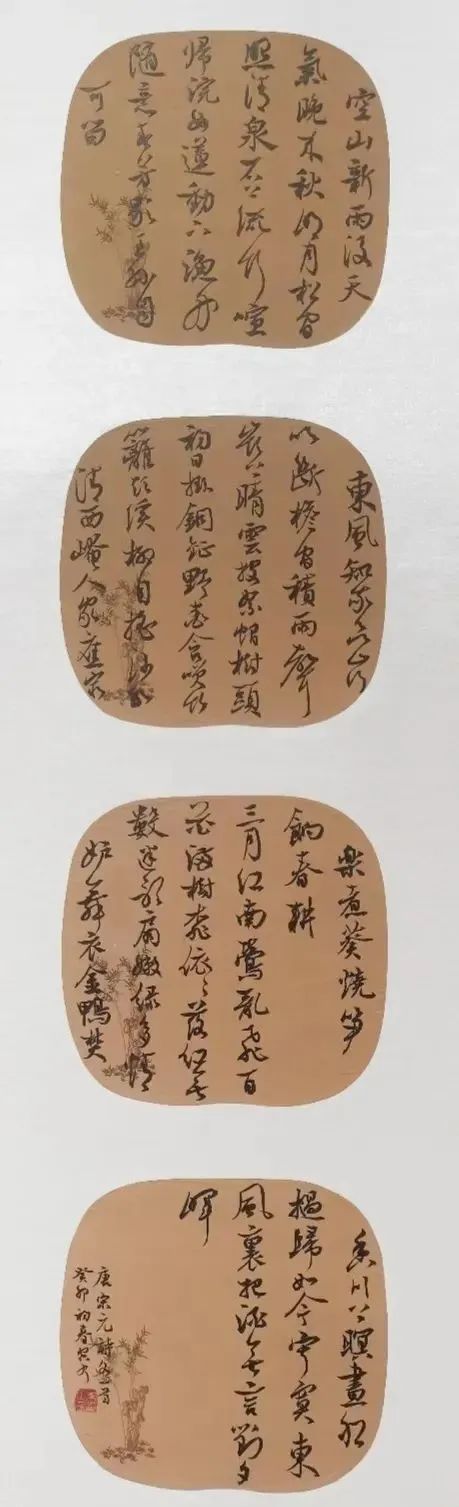 空山新雨後天
氣晚来秋明月松間
照清泉石上流竹喧
歸浣女蓮動下漁舟
隨意春芳歇王孫自
可留
東風知我欲山行
吹斷檐間積雨聲
嶺上晴雲披絮帽樹頭
初日掛銅鉦野桃含笑竹
籬短溪柳自搖沙水
清西崦人家應最
樂煮葵燒筍
餉春耕
三月江南鶯亂飛百
花滿樹柳依依落紅無
數迷歌扇嫩綠多情
妒舞衣金鴨焚
香川上暝畫船
撾歸如今寂寞東
風裏把酒無言對夕
暉
唐宋元詩各首
癸卯初春